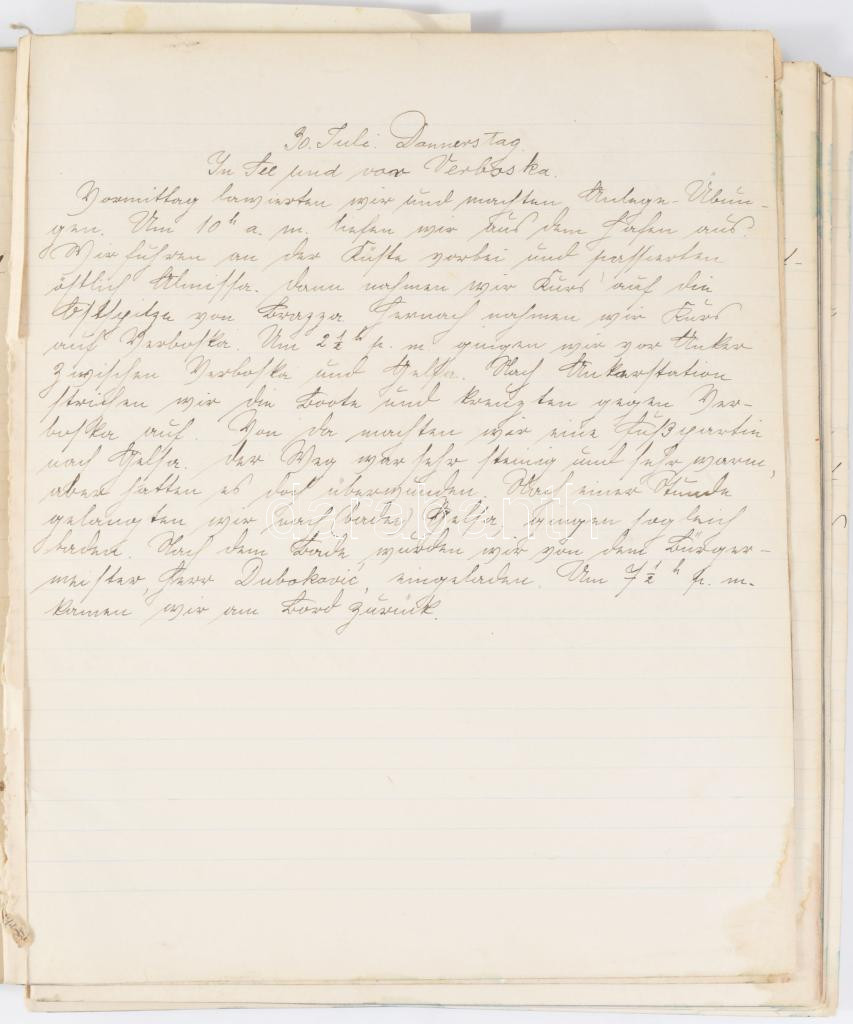 30. Juli. Donnerstag.
In See und vor Verboska.
Vormittag lawierten wir und machten Anlege-Übun-
gen. Um 10 h a. m. liefen wir aus dem Hafen aus.
Wir fuhren an der Küste vorbei und passierten
östlich Almissa. Dann nahmen wir Kurs auf die
Ostspitze von Brazza. Hernach nahmen wir Kurs
auf Verboska. Um 2 1/2 h p. m. gingen wir vor Anker
zwischen Verboska und Gelsa. Nach Ankerstation
strichen wir die Boote und kreuzten gegen Ver-
boska auf. Von da machten wir eine Fußpartie
nach Gelsa. Der Weg war sehr steinig und sehr warm,
aber hatten es doch überwunden. Nach einer Stunde
gelangten wir nach (baden) Gelsa, gingen sogleich
baden. Nach dem Bade, wurden wir von dem Bürger-
meister, Herr Duboković, eingeladen. Um 7 1/2 h p. m.
kamen wir am Bord zurück.
darabanth